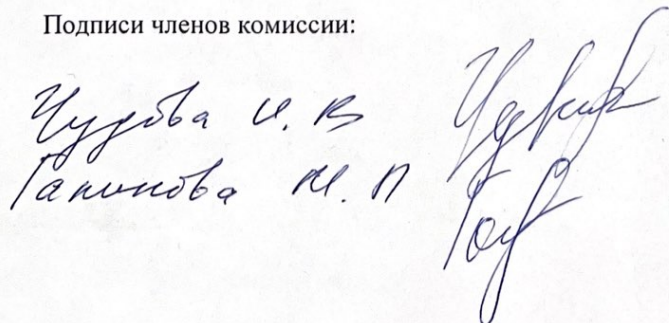 Подписи членов комиссии:
Чудова И. В
Гапонова М. П